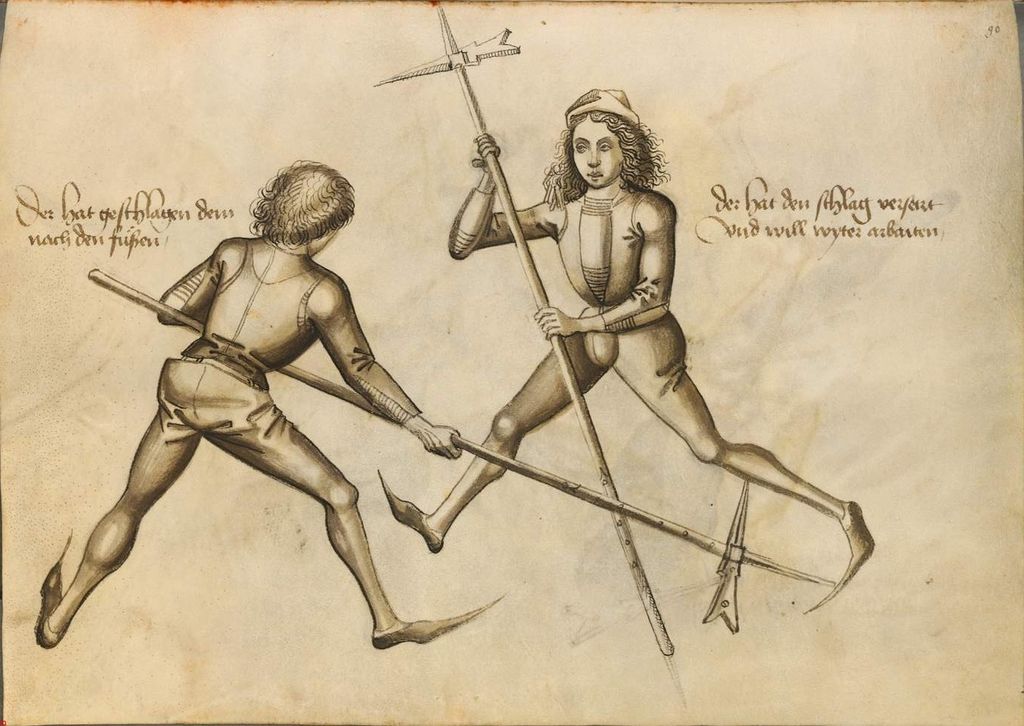 Der hat geschlagen dem
nach den füßen
der hat den schlag versett
Vnd will wyter arbaiten
90